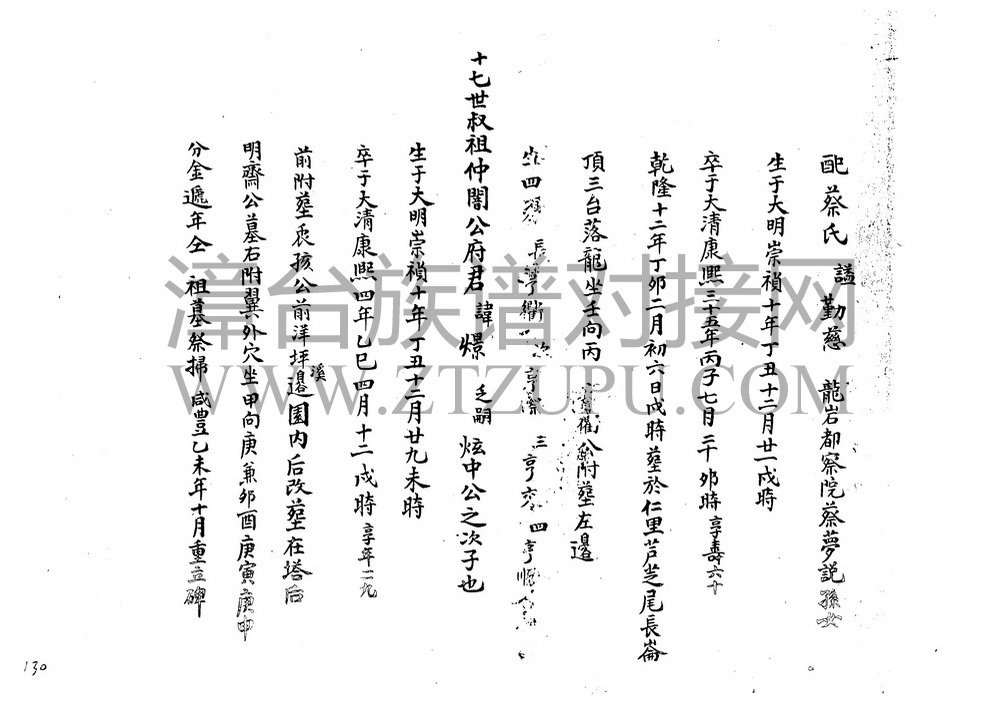 配蔡氏 謚 勤慈 龍岩都察院蔡夢説孫女
生于大明崇禎十年丁丑十二月廿一戌時
卒于大清康熙三十五年丙子七月二十卯時享壽六十
乾隆十二年丁卯二月初六日戌時塟於仁里芦芝尾長崙
頂三台落龍坐壬向丙 公附塟左邉
四 長 三 亨 四 亨
十七世叔祖仲誾公府君 諱 憬 乏嗣 炫中公之次子也
生于大明崇禎十年丁丑十二月廿九未時
卒于大清康熙四年乙巳四月十二戌時享年二九
前附塟丧孩公前洋坪溪邉園内后改塟在塔后
明齋公墓右附翼外穴坐甲向庚兼卯酉庚寅庚申
分金遞年仝 祖墓祭掃 咸豊乙未年十月重立碑
130
漳台族谱对接网
WWW.ZTZUPU.COM